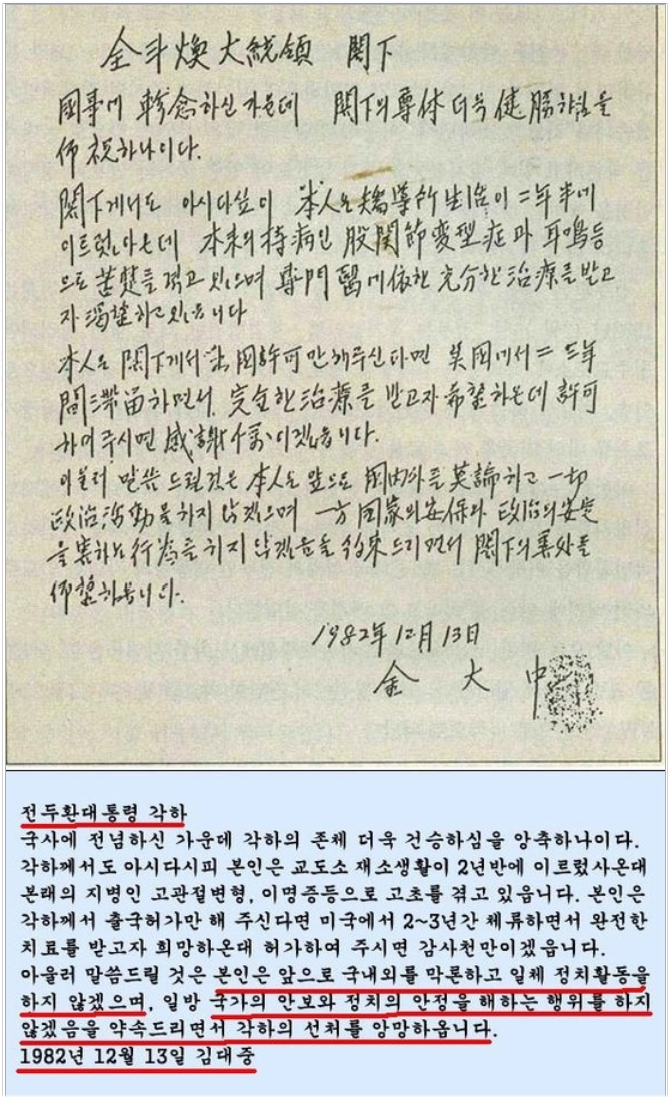 全斗煥大統領 閣下
國事에 軫念하신 가운데 閣下의 尊体 더욱 健勝하심을
仰祝하나이다.
閣下께서도 아시다싶이 本人은 矯導所 生活이 二年半에
이르렀아온데 本来의 持病인 股關節変型症과 耳鳴等
으로 苦楚를 겪고 있으며 専門醫에 依한 充分한 治療를 받고
자 渴望하고 있읍니다
本人은 閣下께서 出國許可만 해주신다면 美國에서 二 三年
間 滞留하면서 完全한 治療를 받고자 希望하온데 許可
하여 주시면 感謝千萬이겠읍니다.
아울러 말씀 드릴것은 本人은 앞으로 國内外를 莫論하고 一切
政治活動을 하지 않겠으며 一方 國家의 安保와 政治의 安定
을 害하는 行為를 하지 않겠음을 約束드리면서 閣下의 善処를
仰望하옵니다.
1982年 12月 13日
金 大 中
전두환대통령 각하
국사에 전념하신 가운데 각하의 존체 더욱 건승하심을 앙축하나이다.
각하께서도 아시다시피 본인은 교도소 재소생활이 2년반에 이르렀사온대
본래의 지병인 고관절변형, 이명증등으로 고초를 겪고 있읍니다. 본인은
각하께서 출국허가만 해 주신다면 미국에서 2~3년간 체류하면서 완전한
치료를 받고자 희망하온대 허가하여 주시면 감사천만이겠읍니다.
아울러 말씀드릴 것은 본인은 앞으로 국내외를 막론하고 일체 정치활동을
하지 않겠으며, 일방 국가의 안보와 정치의 안정을 해하는 행위를 하지
않겠음을 약속드리면서 각하의 선처를 앙망하옵니다.
1982년 12월 13일 김대중